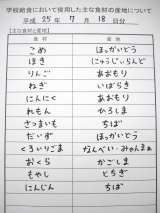 学校給食において使用した主な食材の産地について
平成 25年 7月 18日分
【主な食材と産地】
食材 産地
こめ ほっかいどう
ほき にゅーじーらんど
りんご あおもり
ねぎ いばらき
にんにく あおもり
れもん ひろしま
さつまいも ちば
だいず ほっかいどう
くろいりごま なんべい・みゃんまぁ
おくら かごしま
もやし とちぎ
にんじん ちば